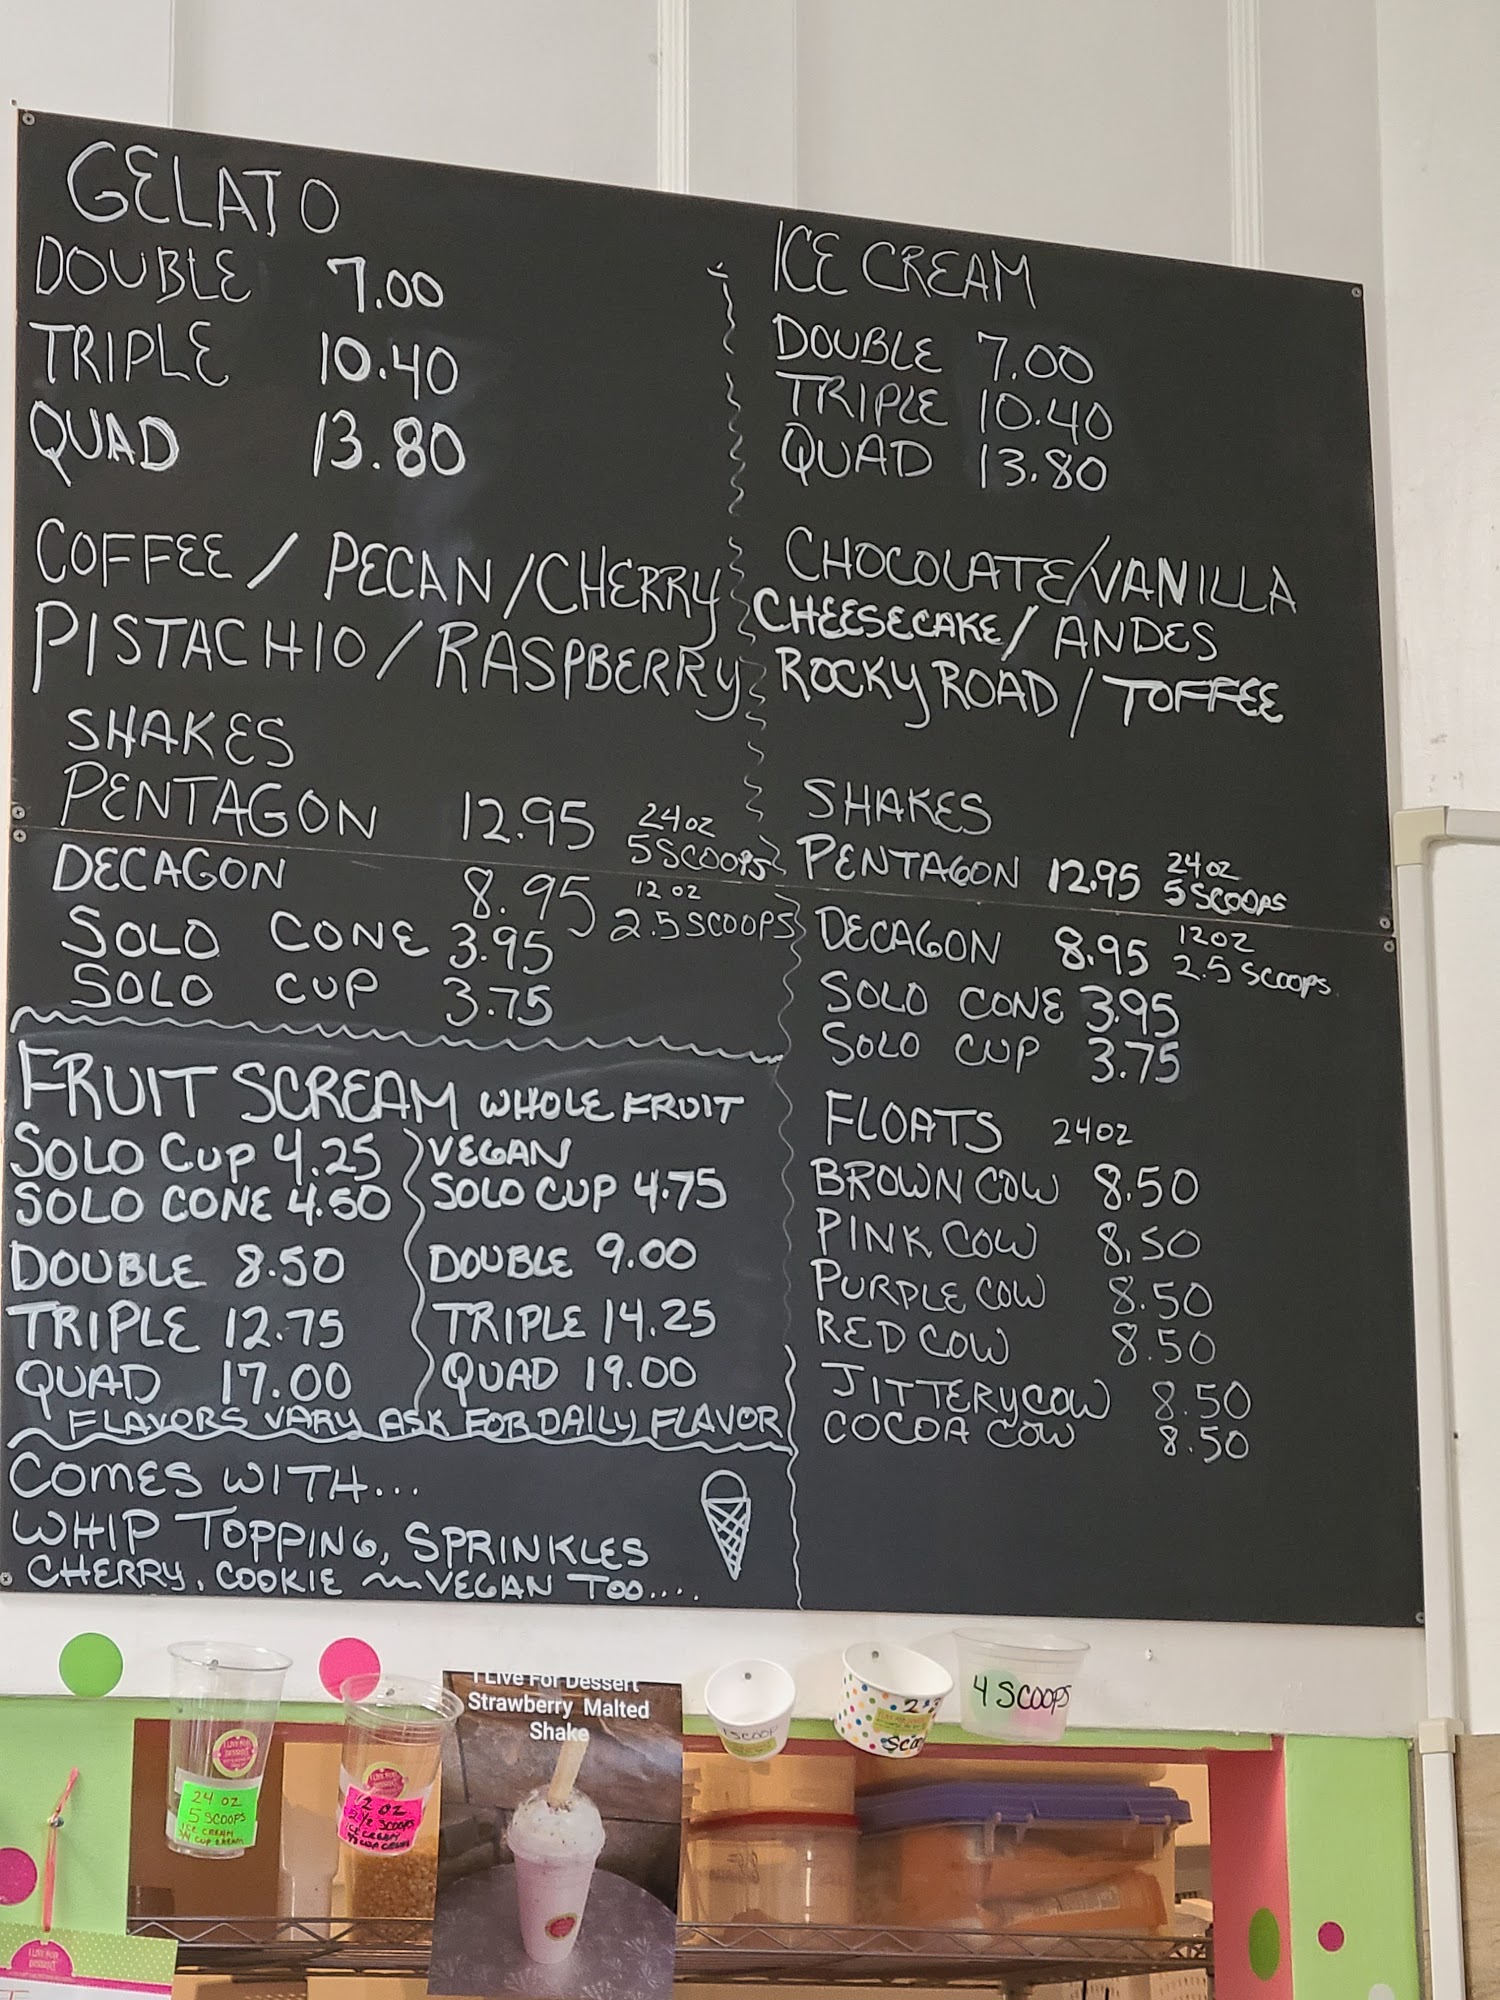 GELATO
DOUBLE 7.00
TRIPLE 10.40
QUAD 13.80
COFFEE / PECAN / CHERRY
PISTACHIO / RASPBERRY
SHAKES
PENTAGON 12.95 24 oz
5 SCOOPS
DECAGON 8.95 12 oz
2.5 SCOOPS
SOLO CONE 3.95
SOLO CUP 3.75
FRUIT SCREAM WHOLE FRUIT
SOLO CUP 4.25
SOLO CONE 4.50
DOUBLE 8.50
TRIPLE 12.75
QUAD 17.00
VEGAN
SOLO CUP 4.75
DOUBLE 9.00
TRIPLE 14.25
QUAD 19.00
FLAVORS VARY ASK FOR DAILY FLAVOR
COMES WITH...
WHIP TOPPING, SPRINKLES
CHERRY, COOKIE ~ VEGAN TOO....
ICE CREAM
DOUBLE 7.00
TRIPLE 10.40
QUAD 13.80
CHOCOLATE/VANILLA
CHEESECAKE/ ANDES
ROCKY ROAD / TOFFEE
SHAKES
PENTAGON 12.95 24 oz
5 SCOOPS
DECAGON 8.95 12 oz
2.5 SCOOPS.
SOLO CONE 3.95
SOLO CUP 3.75
FLOATS 24 oz
BROWN COW 8.50
PINK COW 8.50
PURPLE COW 8.50
RED COW 8.50
JITTERY COW 8.50
COCOA COW 8.50
24 OZ
5 SCOOPS
ICE CREAM
12 OZ
2 1/2 SCOOPS
ICE CREAM
I Live For Dessert
Strawberry Malted
Shake
1 SCOOP
4 SCOOPS
I LIVE FOR
DESSERT